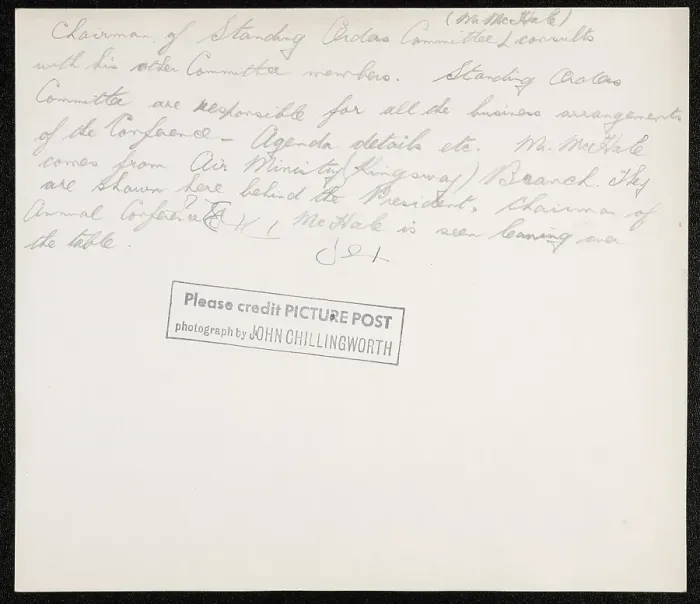 (Mr. McHale)
Chairman of Standing Orders Committee consults
with his other Committee members. Standing Orders
Committee are responsible for all the business arrangements
of the Conference - Agenda details etc. Mr. McHale
comes from Air Ministry (Kingsway) Branch. They
are shown here behind the President, Chairman of
Annual Conference McHale is seen leaning over
the table.
Please credit PICTURE POST
photograph by JOHN CHILLINGWORTH